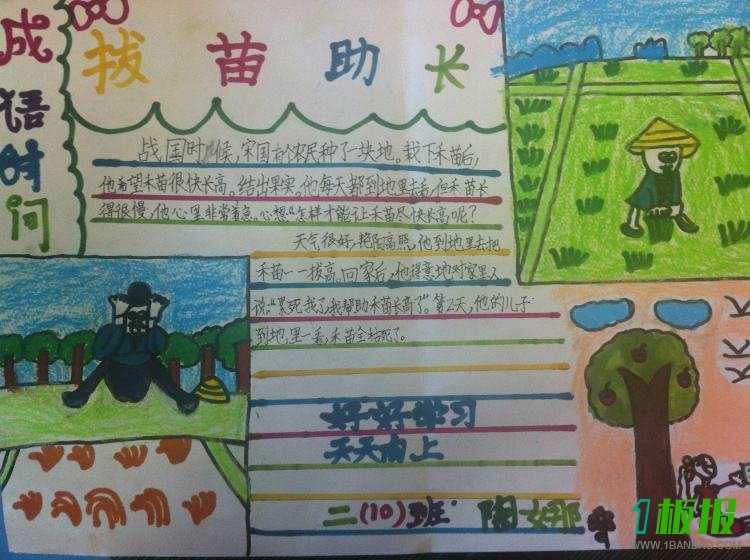 成语时间
拔苗助长
战国时候,宋国有个农民种了一块地。栽下禾苗后,
他希望禾苗很快长高。结出果实。他每天都到地里去看,但禾苗长
得很慢,他心里非常着急。心想“怎样才能让禾苗尽快长高呢?
天气很好,艳阳高照,他到地里去把
禾苗一一拔高。回家后,他得意地对家里人
说:“累死我了,我帮助禾苗长高了”。第2天,他的儿子
到地里一看,禾苗全枯死了。
好好学习
天天向上
二(10)班 陶娜
1板报
WWW.1BANBAO.COM